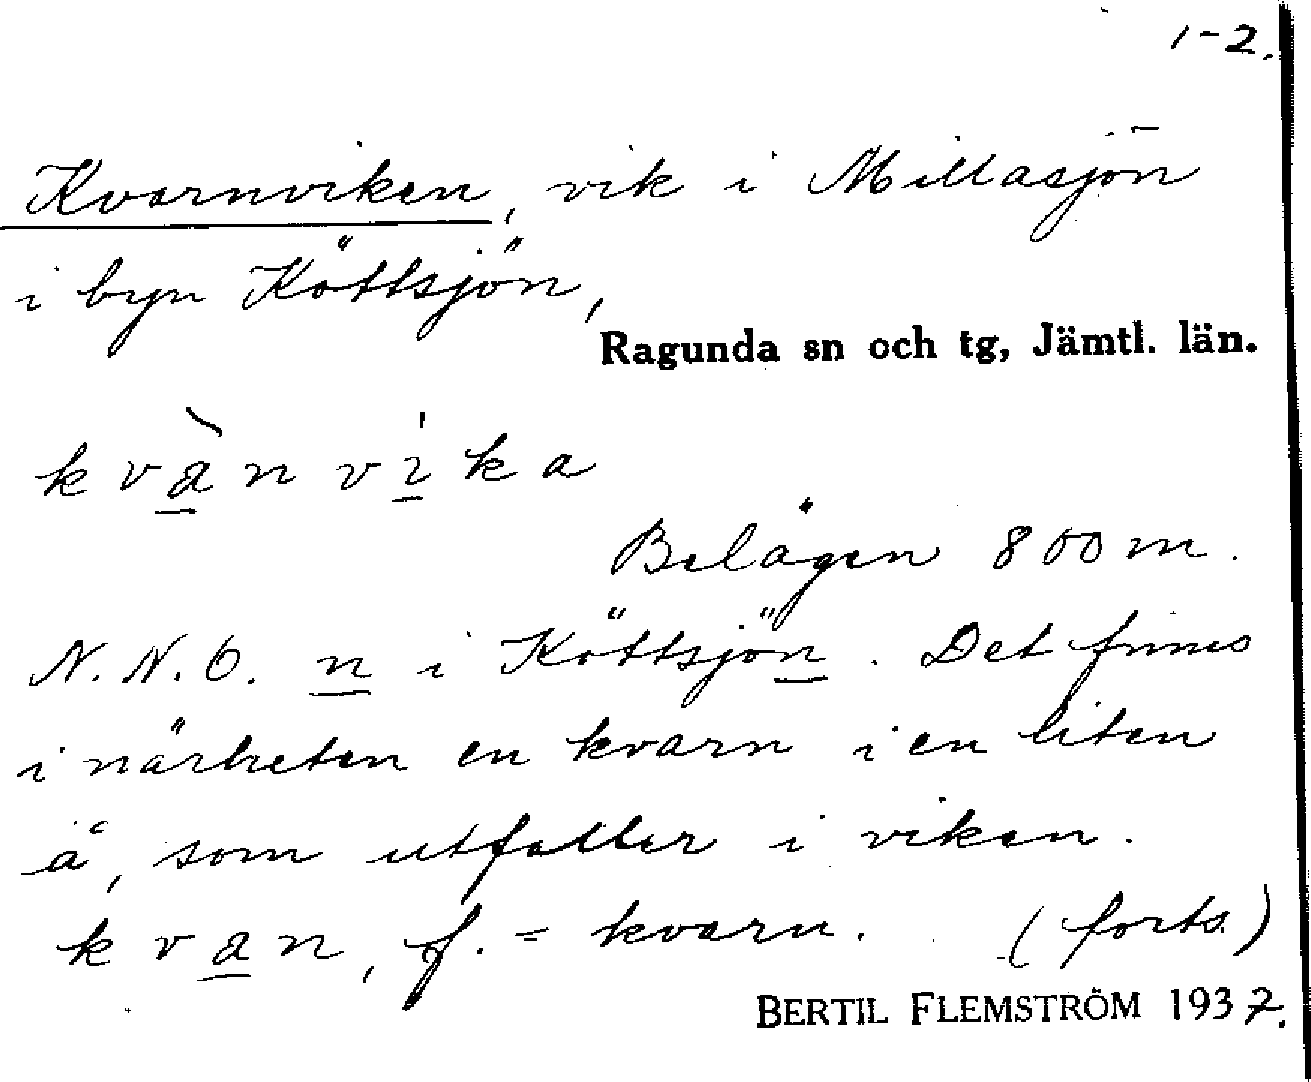 1-2.
Kvarnviken, vik i Millasjön
i byn Köttsjön,
Ragunda sn och tg, Jämtl. län.
kvànvika
Belägen 800 m.
N.N.O. n i Köttsjön. Det finns
i närheten en kvarn i en liten
å, som utfaller i viken.
kvan, f. = kvarn. (forts.)
BERTIL FLEMSTRÖM 1937.